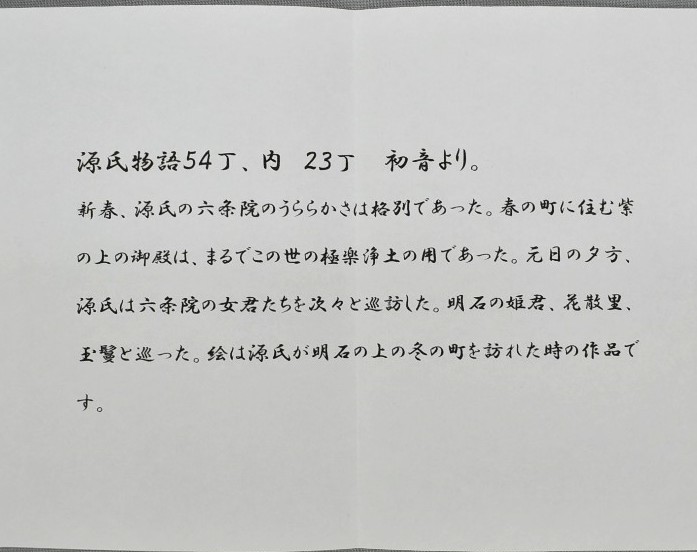 源氏物語54丁、内　23丁　初音より。
新春、源氏の六条院のうららかさは格別であった。春の町に住む紫
の上の御殿は、まるでこの世の極楽浄土の用であった。元日の夕方、
源氏は六条院の女君たちを次々と巡訪した。明石の姫君、花散里、
玉鬘と巡った。絵は源氏が明石の上の冬の町を訪れた時の作品で
す。